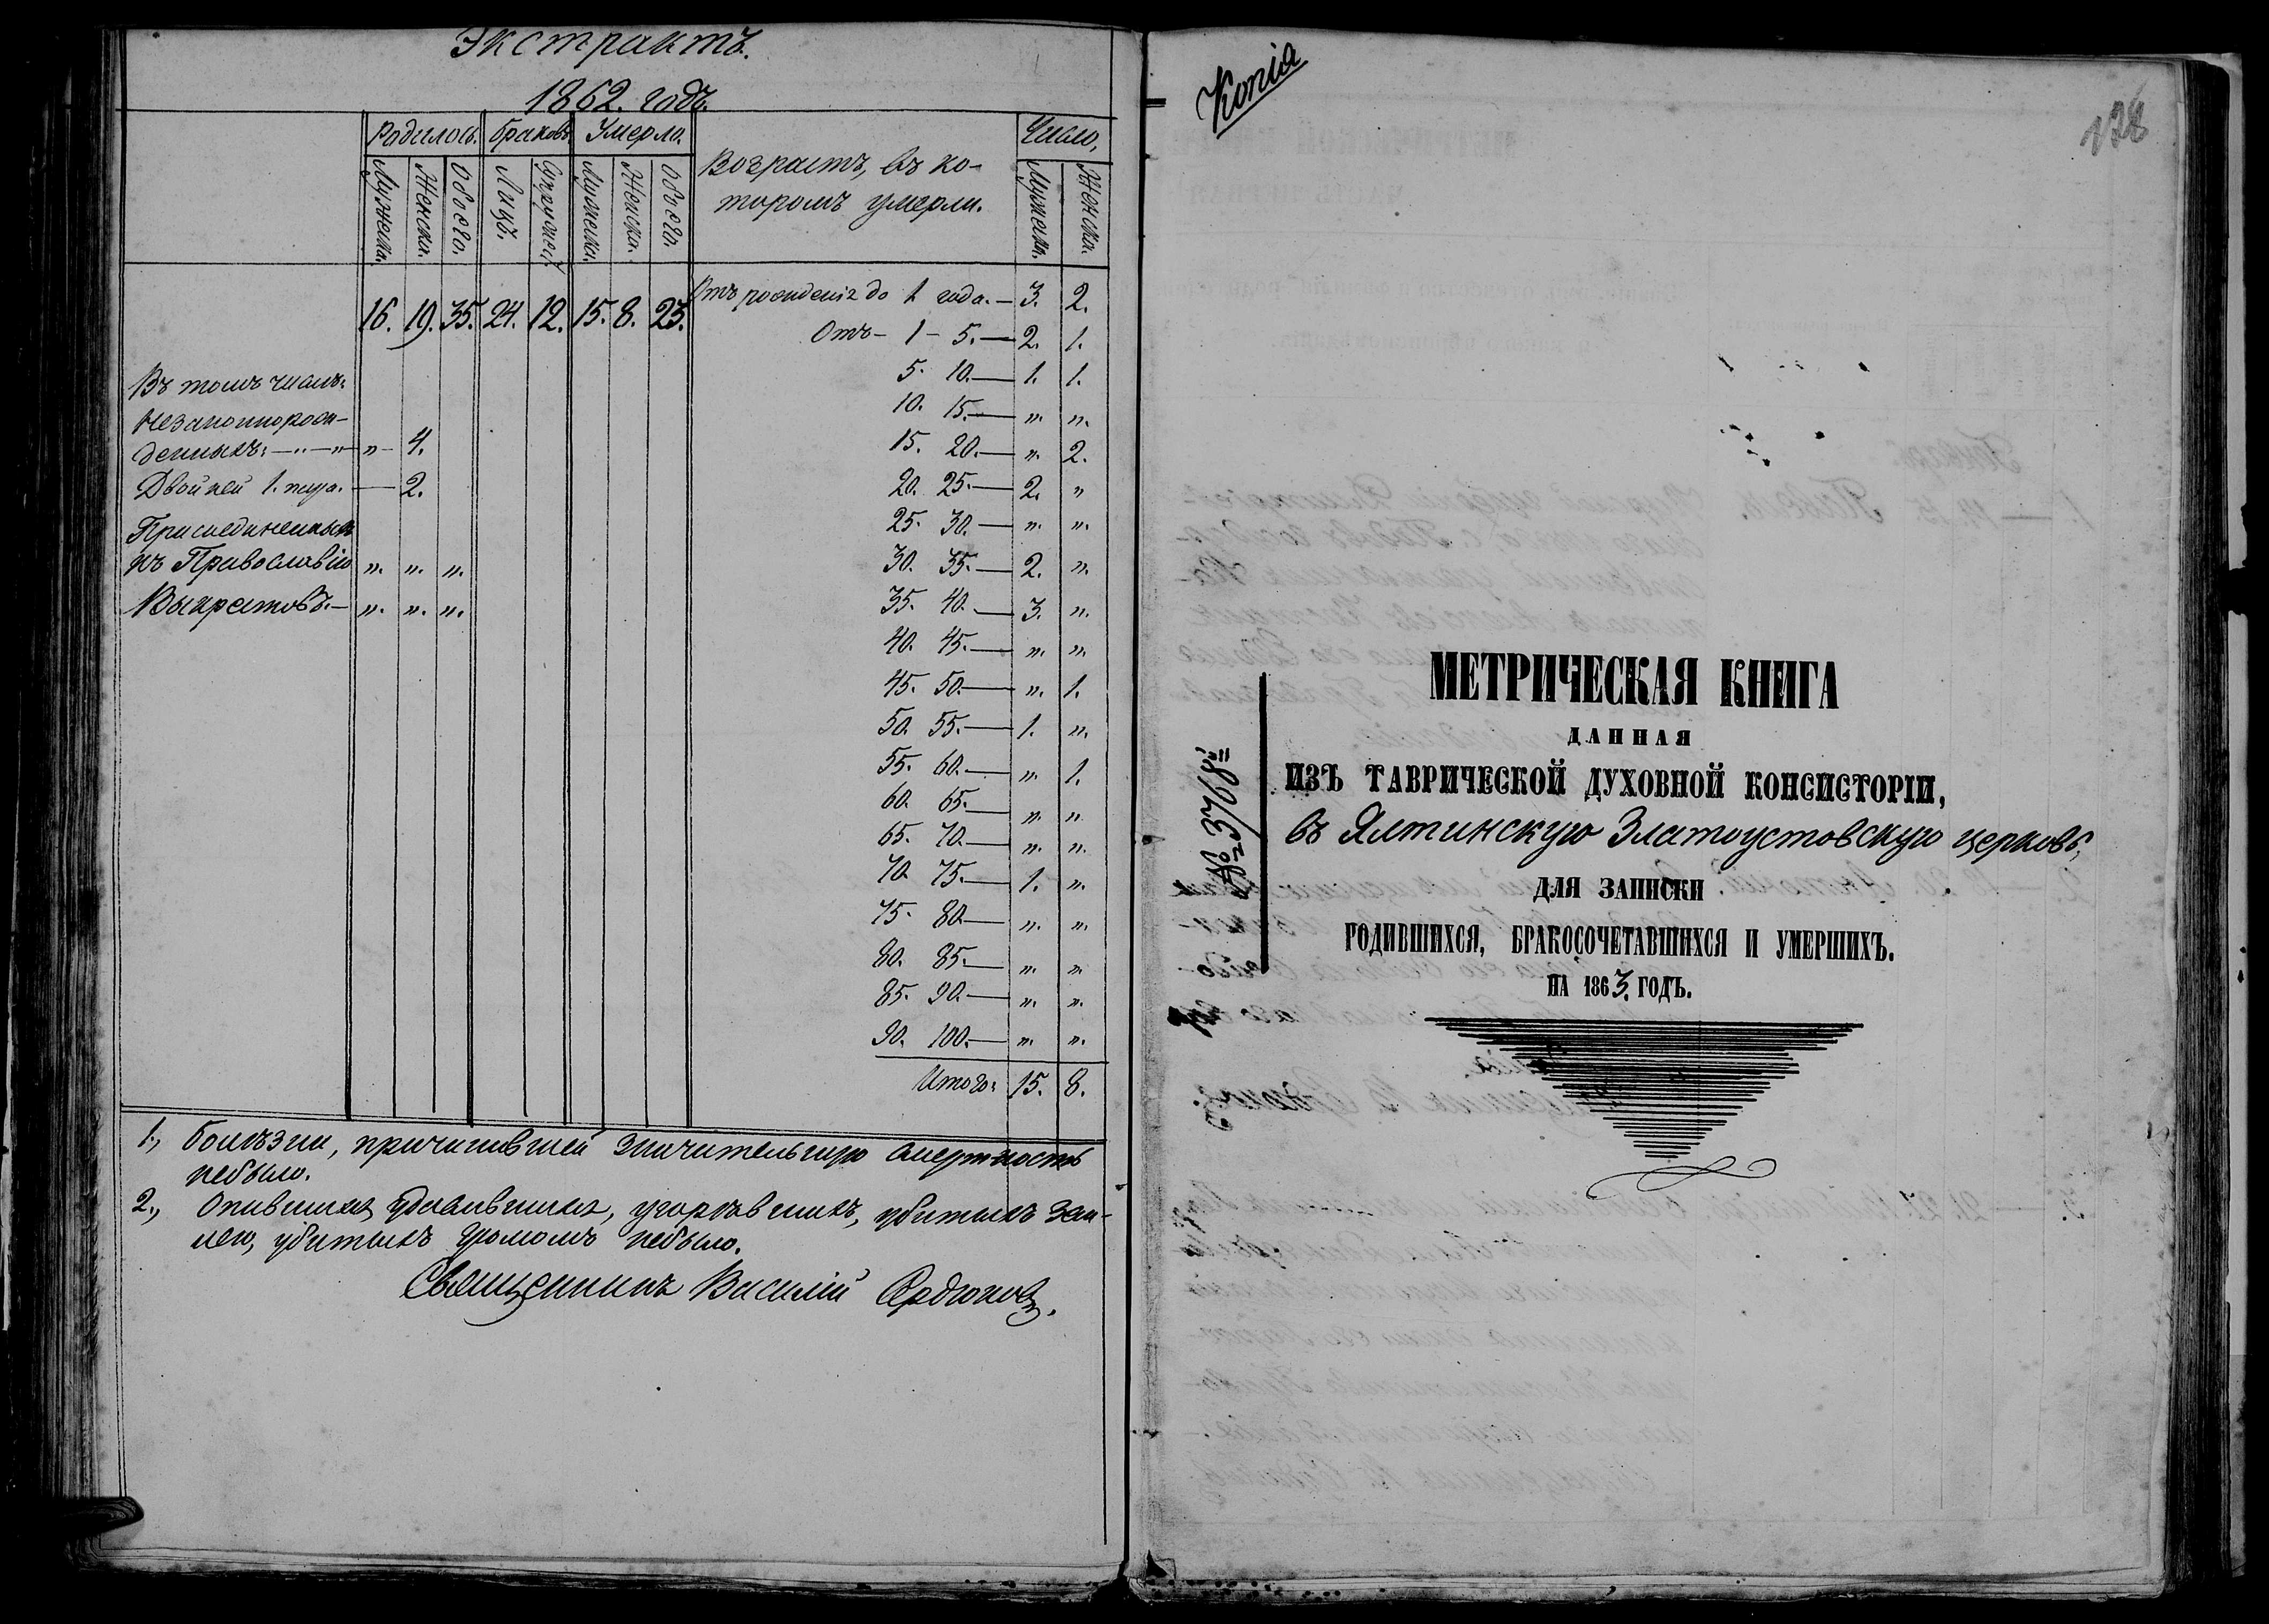 Экстрактъ.
1862. годъ.
Родилось. Браковъ. Умерло. Возрастъ, въ ко-
торомъ умерли. Число.
Мужеска. Женска. Обоего. Лицъ. Супружест. Мужеска. Женска. Обоего. Мужеска. Женска.
16. 19. 35. 24. 12. 15. 8. 23.
Отъ рожденія до 1 года.— 3. 2.
Отъ— 1— 5.— 2. 1.
5. 10.— 1. 1.
10. 15.— „. „.
15. 20.— „. 2.
20. 25.— 2. „
25. 30.— „. „.
30. 35.— 2. „.
35. 40.— 3. „.
40. 45.— „. „.
45. 50.— „. 1.
50. 55.— 1. „.
55. 60.— „. 1.
60. 65.— „. „.
65. 70.— „. „.
70. 75.— 1. „.
75. 80.— „. „.
80. 85.— „. „.
85. 90.— „. „.
90. 100.— „. „.
Итого: 15. 8.
Въ томъ числѣ:
Незаконнорож-
денныхъ:—„—„ „— 4.
Двойней 1. пара.— 2.
Присоединенныхъ
къ Православію „. „. „.
Выкрестовъ.— „. „. „.
1., Болѣзни, причинившей значительную смертность
небыло.
2., Опившихся, удавившихся, угорѣвшихъ, убитыхъ зем-
лею, убитыхъ громомъ небыло.
Священникъ Василій Ордюковъ.
Копіа
128
МЕТРИЧЕСКАЯ КНИГА
ДАННАЯ
ИЗЪ ТАВРИЧЕСКОЙ ДУХОВНОЙ КОНСИСТОРІИ,
въ Ялтинскую Златоустовскую церковь,
ДЛЯ ЗАПИСКИ
РОДИВШИХСЯ, БРАКОСОЧЕТАВШИХСЯ И УМЕРШИХЪ.
НА 1863. ГОДЪ.